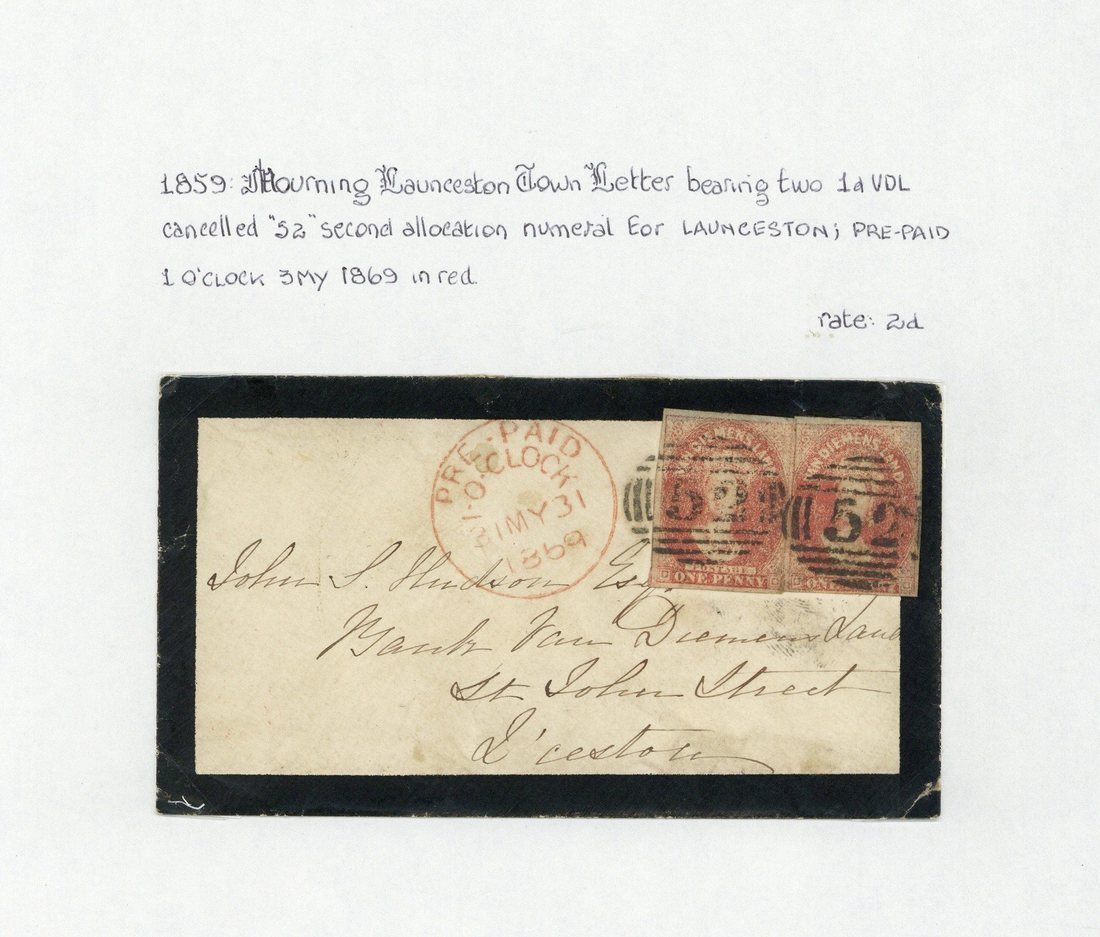 1859: Mourning Launceston Town Letter bearing two 1d VDL
cancelled "52" second allocation numeral for LAUNCESTON; PRE-PAID
1 O'CLOCK 3MY 1869 in red.
rate: 2d
PRE-PAID
1-O-CLOCK
MY 31
1869
VAN DIEMENS LAND
52
POSTAGE
ONE PENNY
VAN DIEMENS LAND
52
John S. Hudson Esq
Bank Van Diemens Land
St John Street
L'ceston